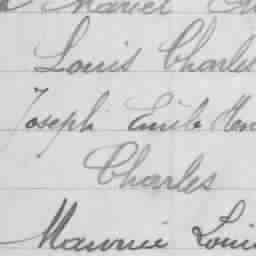 Marcel
Louis Charles
Joseph Emile Hen
Charles
Maurice Loui